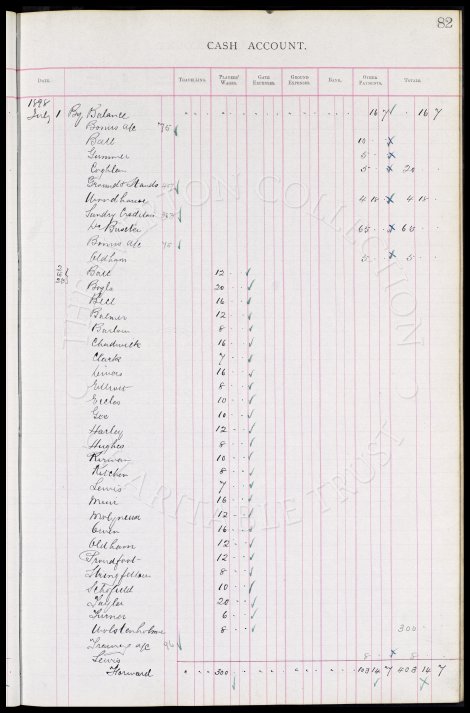 82
CASH ACCOUNT.
DATE. TRAVELLING. PLAYERS' WAGES. GATE EXPENSES. GROUND EXPENSES. BANK. OTHER PAYMENTS. TOTALS.
1898
July 1 By Balance 16 7 16 7
Bonus a/c
Ball 10
Gunner 5
Coghlan 5 20
Grounds & Stands
Woodhouse 4 18 4 18
Sundry Creditors
Dr Baxter 65 65
Bonus a/c
Oldham 5 5
Ball 12
Boyle 20
Bell 16
Balmer 12
Barlow 8
Chadwick 16
Clarke 7
16
8
Eccles 10
Gee 10
Harley 12
Hughes 8
Kirwan 10
Kitchen 8
Lewis 7
Muir 16
Molyneux 12
Owen 16
Oldham 12
Proudfoot 12
Stringfellow 8
Schofield 10
Taylor 20
Turner 6
Wolstenholme 8 300
a/c
Lewis 8 8
Forward 300 103 14 7 403 14 7
THE EVERTON COLLECTION CHARITABLE TRUST